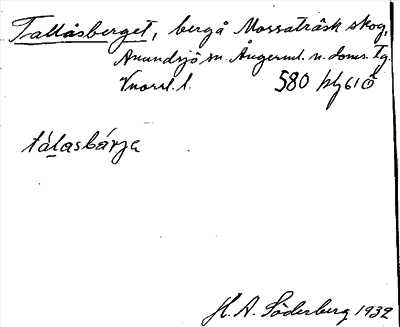 Tallåsberget, berg å Mossaträsk skog,
Anundsjö sn. Ångerml. n. doms. Tg.
Vnorrl. l. 580 hÖ61Ö
tálasbárja
H. A. Söderberg 1932